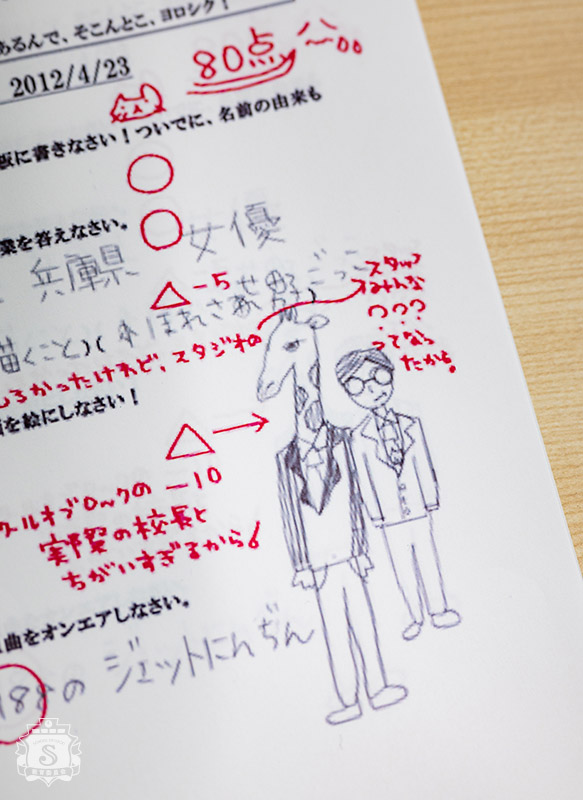 あるんで、そこんとこ、ヨロシク！
2012/4/23
80点
板に書きなさい！ついでに、名前の由来も
業を答えなさい。
兵庫県 女優
△-5
描くこと)(
ごっこ)
スタッフ
みんな
???
ってなっ
たから。
しろかったけれど、スタジオの
を絵にしなさい！
△→
-10
クールオブロックの
実際の校長と
ちがいすぎるから!
曲をオンエアしなさい。
188の ジェットにんぢん
S